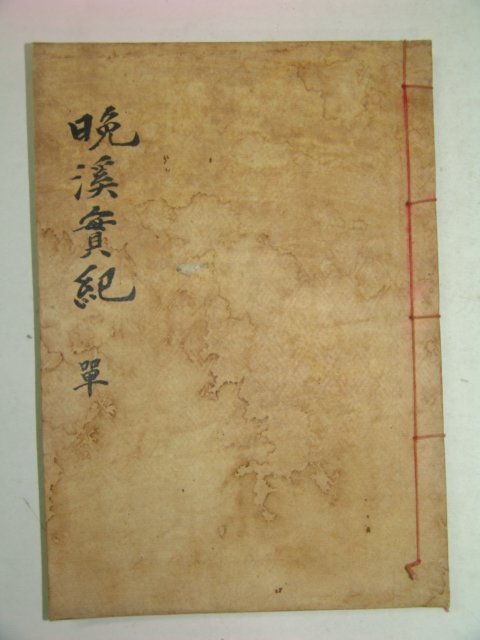 晩溪實紀 單